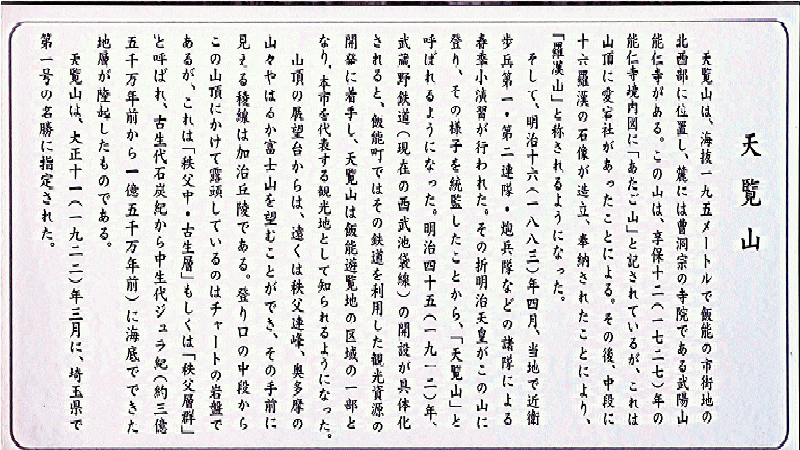 天覧山
天覧山は、海抜一九五メートルで飯能の市街地の
北西部に位置し、麓には曹洞宗の寺院である武陽山
能仁寺がある。この山は、享保十二(一七二七)年の
能仁寺境内図に「あたご山」と記されているが、これは
山頂に愛宕社があったことによる。その後、中段に
十六羅漢の石像が造立、奉納されたことにより、
「羅漢山」と称されるようになった。
そして、明治十六(一八八三)年四月、当地で近衛
歩兵第一・第二連隊・炮兵隊などの諸隊による
春季小演習が行われた。その折明治天皇がこの山に
登り、その様子を統監したことから、「天覧山」と
呼ばれるようになった。明治四十五(一九一二)年、
武蔵野鉄道(現在の西武池袋線)の開設が具体化
されると、飯能町ではその鉄道を利用した観光資源の
開発に着手し、天覧山は飯能遊覧地の区域の一部と
なり、本市を代表する観光地として知られるようになった。
山頂の展望台からは、遠くは秩父連峰、奥多摩の
山々やはるか富士山を望むことができ、その手前に
見える稜線は加治丘陵である。登り口の中段から
この山頂にかけて露頭しているのはチャートの岩盤で
あるが、これは「秩父中・古生層」もしくは「秩父層群」
と呼ばれ、古生代石炭紀から中生代ジュラ紀(約三億
五千万年前から一億五千万年前)に海底でできた
地層が隆起したものである。
天覧山は、大正十一(一九二二)年三月に、埼玉県で
第一号の名勝に指定された。